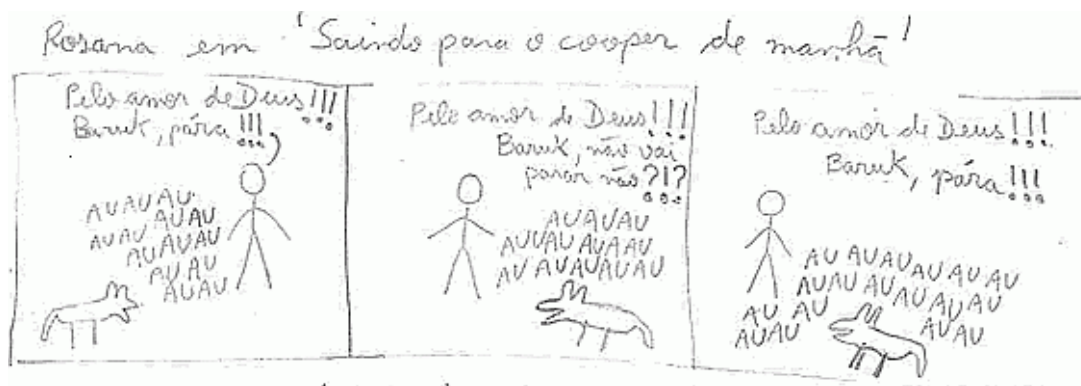 Rosana em 'Saindo para o cooper de manhã'
Pelo amor de Deus!!!
Baruk, pára!!!
AUAUAU
AUAU AUAU
AUAUAU
AUAU
AUAU
Pelo amor de Deus!!!
Baruk, não vai
parar não?!?
AUAUAU
AUUAU AUAAU
AU AUAUAUAU
Pelo amor de Deus!!!
Baruk, pára!!!
AU AUAUAUAUAU
AUAU AUAUAUAU
AU AU
AUAU
AUAU